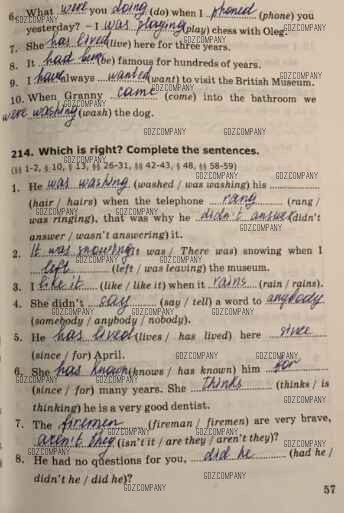 6. What were you doing (do) when I phoned (phone) you
yesterday? – I was playing (play) chess with Oleg.
7. She has lived (live) here for three years.
8. It had been (be) famous for hundreds of years.
9. I have always wanted (want) to visit the British Museum.
10. When Granny came (come) into the bathroom we
GDZCOMPANY
were washing (wash) the dog.
GDZCOMPANY GDZCOMPANY
214. Which is right? Complete the sentences.
GDZCOMPANY
(§§ 1-2, § 10, § 13, §§ 26-31, §§ 42-43, § 48, §§ 58-59)
1. He was washing (washed / was washing) his ............
GDZCOMPANY GDZCOMPANY
(hair / hairs) when the telephone rang (rang /
was ringing), that was why he didn't answer (didn't
answer / wasn't answering) it.
GDZCOMPANY GDZCOMPANY
2. It was snowing (It was / There was) snowing when I
left (left / was leaving) the museum.
GDZCOMPANY
3. I like it (like / like it) when it rains (rain / rains).
4. She didn't say (say / tell) a word to anybody
GDZCOMPANY GDZCOMPANY GDZCOMPANY
(somebody / anybody / nobody).
5. He has lived (lives / has lived) here since
GDZCOMPANY
(since / for) April.
GDZCOMPANY GDZCOMPANY
6. She has known (knows / has known) him for
GDZCOMPANY
(since / for) many years. She thinks (thinks / is
GDZCOMPANY GDZCOMPANY
thinking) he is a very good dentist.
7. The firemen (fireman / firemen) are very brave,
GDZCOMPANY
aren't they (isn't it / are they / aren't they)?
GDZCOMPANY GDZCOMPANY
8. He had no questions for you, did he (had he /
GDZCOMPANY
didn't he / did he)?
GDZCOMPANY
57